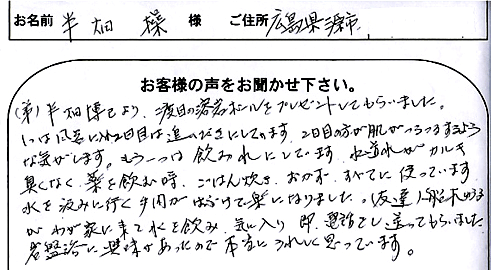 お名前 半畑 操 様 ご住所 広島県 市
お客様の声をお聞かせ下さい。
(弟)半畑博己より、2度目の溶岩ボールをプレゼントしてもらいました。
1つは風呂に入れ2日目は追いだきにしています。2日目の方が肌がつるつるするよう
な気がします。もう一つは飲み水にしています。水道水がカルキ
臭くなく、薬を飲む時、ごはん炊き、おかず、すべてに使っています。
水を汲みに行く手間がはぶけて楽になりました。(友達)船木
がわが家に来て水を飲み、気に入り 即、電話でし送ってもらいました。
岩盤浴に興味があったので本当にうれしく思っています。